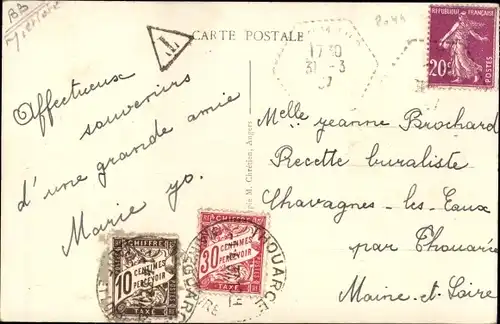 T
CARTE POSTALE
17 30
31 - 3
37
RÉPUBLIQUE FRANÇAISE
20c
POSTES
Affectueux
souvenirs
d'une grande amie
Marie yo.
Melle yeanne Brochard
Recette buraliste
Chavagnes-les-Eaux
par Thouarcé
Maine-et-Loire
M. Chrétien, Angers
CHIFFRE
10 CENTIMES
A PERCEVOIR
TAXE
CHIFFRE
30 CENTIMES
A PERCEVOIR
TAXE
THOUARCÉ